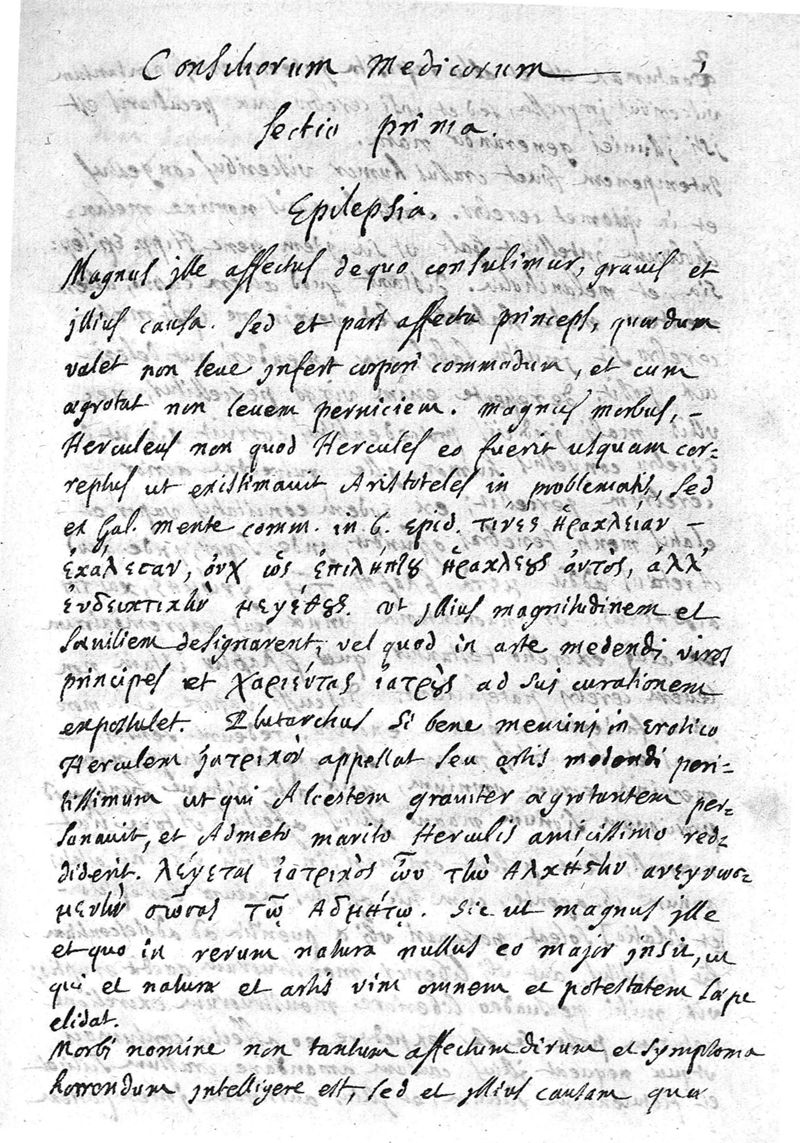 Consiliorum Medicorum
sectio prima.
Epilepsia.
Magnus jlle affectus de quo consulimur, gravis et
jllius causa. Sed et pars affecta princeps, quæ dum
valet non leve jnfert corpori commodum, et cum
ægrotat non levem perniciem. Magnus morbus, -
Herculeus non quod Hercules eo fuerit usquam cor=
reptus ut existimavit Aristoteles in problematis, sed
ex Gal. mente comm. in 6. epid. τινὲς ἡρακλείαν -
ἐκάλεσαν, ὀυχ ὡς ἐπιλήπτȣ ἡρακλέȣς ὀντὸς, ἀλλ'
ἐνδεικτικὴν μεγέθȣς. ut jllius magnitudinem et
sævitiem designarent, vel quod in arte medendi viros
principes et χαριέντας ἰατρȣ̀ς ad sui curationem
expostulet. Plutarchus si bene memini in erotico
Herculem ἰατρικὸν appellat seu artis medendi peri=
tissimum ut qui Alcestem graviter ægrotantem per=
sanavit, et Admeto marito Herculis amicissimo red=
diderit. λέγεται ἰατρικὸς ὢν τὴν Αλκηστιν ανεγνωσ=
μενὴν σῶσαι τῷ Αδμήτῳ. Sic ut magnus jlle
et quo in rerum natura nullus eo major jnsit, ut
qui et naturæ et artis vim omnem et potestatem sæpe
elidat.
Morbi nomine non tantum affectum dirum et symptoma
horrendum jntelligere est, sed et jllius causam quæ